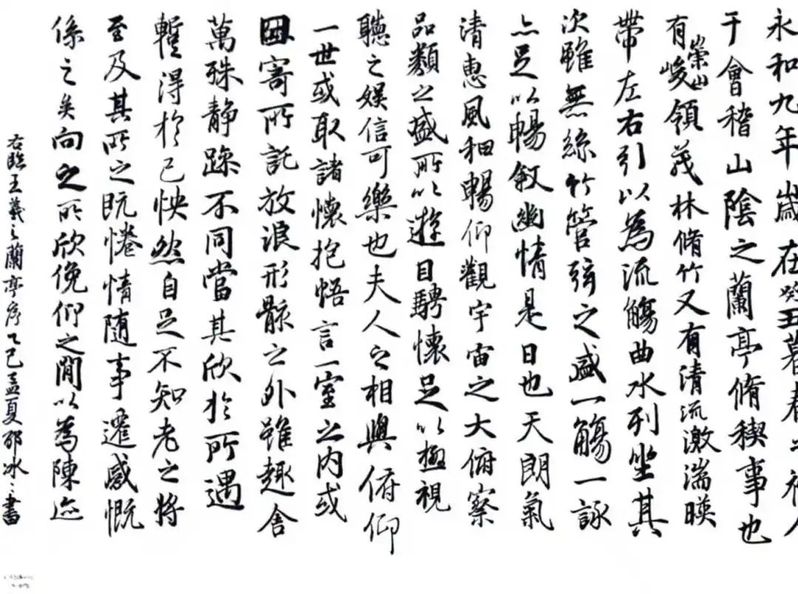 永和九年歲在癸丑暮春之初
于會稽山陰之蘭亭脩稧事也
有崇山峻領茂林脩竹又有清流激湍暎
帶左右引以為流觴曲水列坐其
次雖無絲竹管弦之盛一觴一詠
亦足以暢叙幽情是日也天朗氣
清惠風和暢仰觀宇宙之大俯察
品類之盛所以遊目騁懷足以極視
聽之娛信可樂也夫人之相與俯仰
一世或取諸懷抱悟言一室之內或
因寄所託放浪形骸之外雖趣舍
萬殊静躁不同當其欣於所遇
暫得於己怏然自足不知老之將
至及其所之既惓情隨事遷感慨
係之矣向之所欣俛仰之間以為陳迹
右臨王羲之蘭亭序乙巳孟夏邵冰〻書